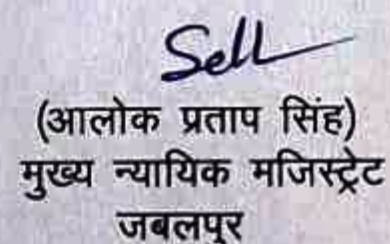 Sell
(आलोक प्रताप सिंह)
मुख्य न्यायिक मजिस्ट्रेट
जबलपुर